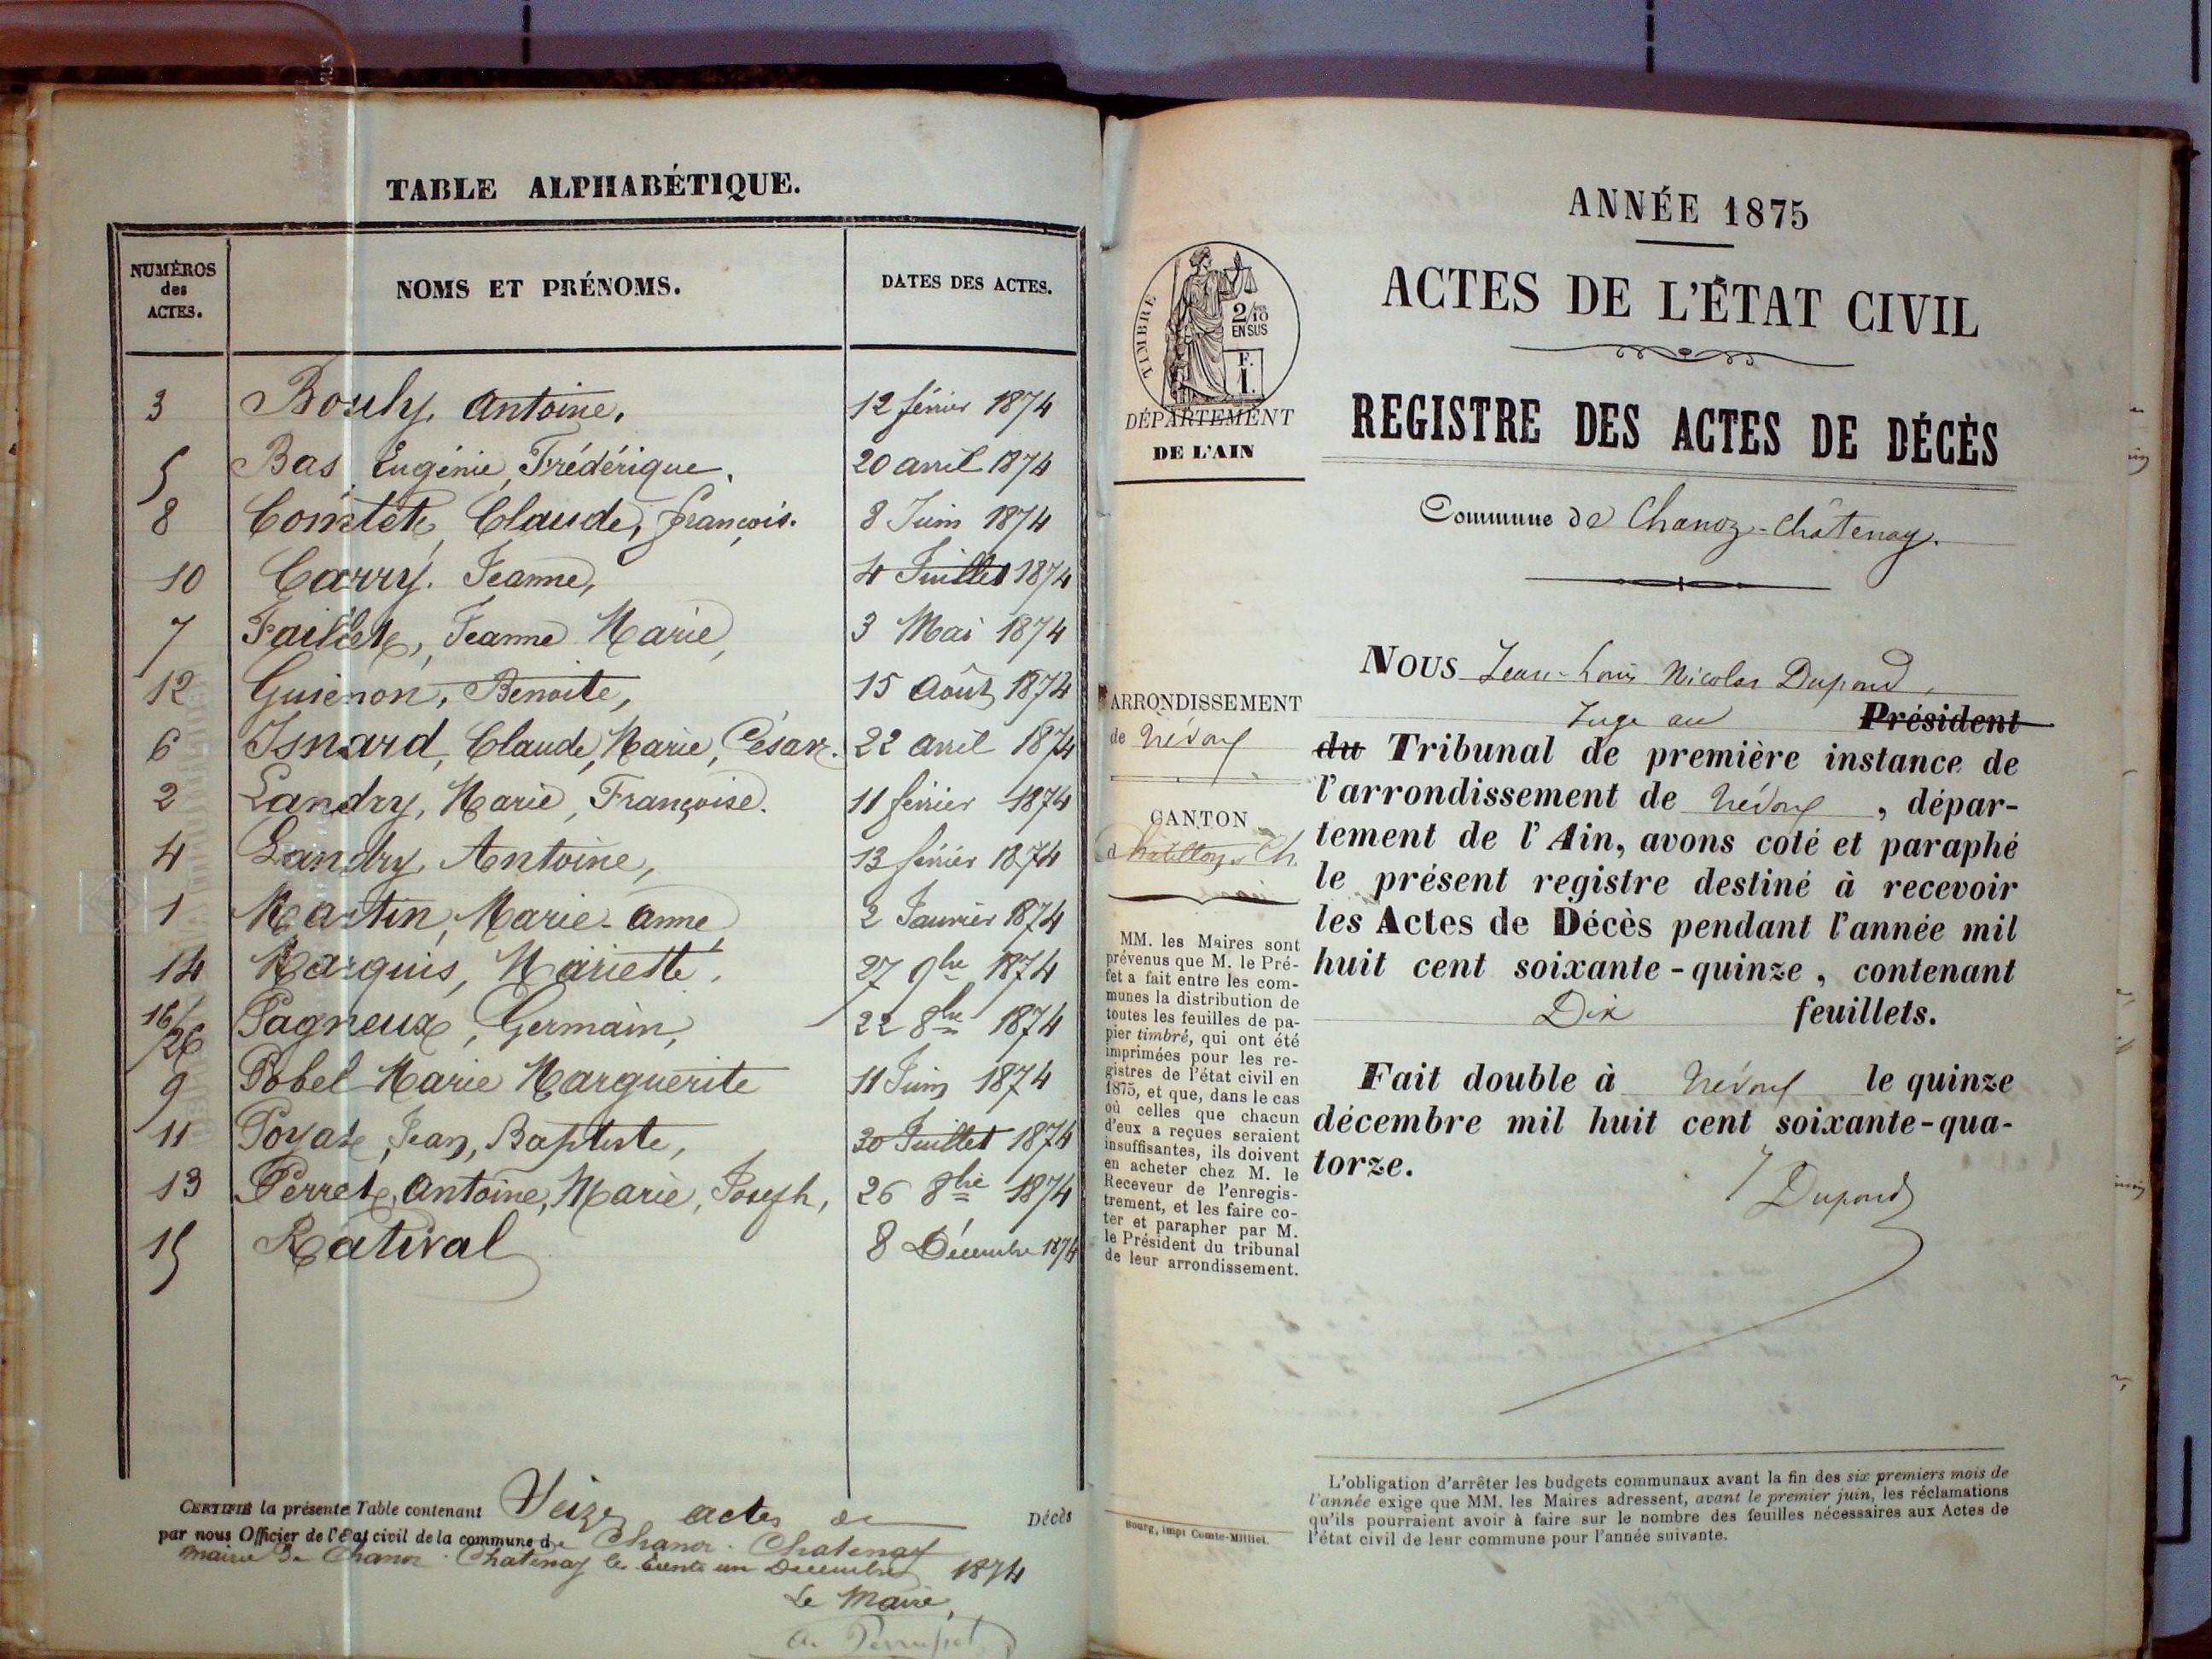 TABLE ALPHABÉTIQUE.
NUMÉROS des ACTES.
NOMS ET PRÉNOMS.
DATES DES ACTES.
3 Bouly, Antoine, 12 février 1874
5 Bas Eugénie, Frédérique, 20 avril 1874
8 Comtet, Claude, françois. 8 Juin 1874
10 Carry. Jeanne, 4 Juillet 1874
7 Faillet, Jeanne Marie, 3 Mai 1874
12 Guienon, Benoite, 15 Août 1874
6 Isnard, Claude, Marie, César. 22 avril 1874
2 Landry, Marie, Françoise. 11 février 1874
4 Landry, Antoine, 13 février 1874
1 Martin, Marie-Anne 2 Janvier 1874
14 Marquis, Mariette, 27 9bre 1874
16/26 Pagneux, Germain, 22 8bre 1874
9 Pobel Marie Marguerite 11 Juin 1874
11 Poyat, Jean, Baptiste, 30 Juillet 1874
13 Perret, Antoine, Marie, Joseph, 26 8bre 1874
15 Rativat 8 Décembre 1874
CERTIFIÉ la présente Table contenant Seize actes de Décès
par nous Officier de l'État civil de la commune de Chanoz-Chatenay
Mairie de Chanoz-Chatenay le trente un Decembre 1874
Le Maire,
ANNÉE 1875
ACTES DE L'ÉTAT CIVIL
REGISTRE DES ACTES DE DÉCÈS
Commune de Chanoz-Châtenay.
TIMBRE
2/10
EN SUS
F.
1.
DÉPARTEMENT
DE L'AIN
ARRONDISSEMENT
de Trévoux
CANTON
d Châtillon s Ch
MM. les Maires sont
prévenus que M. le Pré-
fet a fait entre les com-
munes la distribution de
toutes les feuilles de pa-
pier timbré, qui ont été
imprimées pour les re-
gistres de l'état civil en
1875, et que, dans le cas
où celles que chacun
d'eux a reçues seraient
insuffisantes, ils doivent
en acheter chez M. le
Receveur de l'enregis-
trement, et les faire co-
ter et parapher par M.
le Président du tribunal
de leur arrondissement.
Bourg, impr Comte-Milliet.
NOUS Jean-Louis Nicolas Dupond,
Juge au Président
du Tribunal de première instance de
l'arrondissement de Trévoux, dépar-
tement de l'Ain, avons coté et paraphé
le présent registre destiné à recevoir
les Actes de Décès pendant l'année mil
huit cent soixante-quinze, contenant
Dix feuillets.
Fait double à Trévoux le quinze
décembre mil huit cent soixante-qua-
torze.
Dupond
L'obligation d'arrêter les budgets communaux avant la fin des six premiers mois de
l'année exige que MM. les Maires adressent, avant le premier juin, les réclamations
qu'ils pourraient avoir à faire sur le nombre des feuilles nécessaires aux Actes de
l'état civil de leur commune pour l'année suivante.